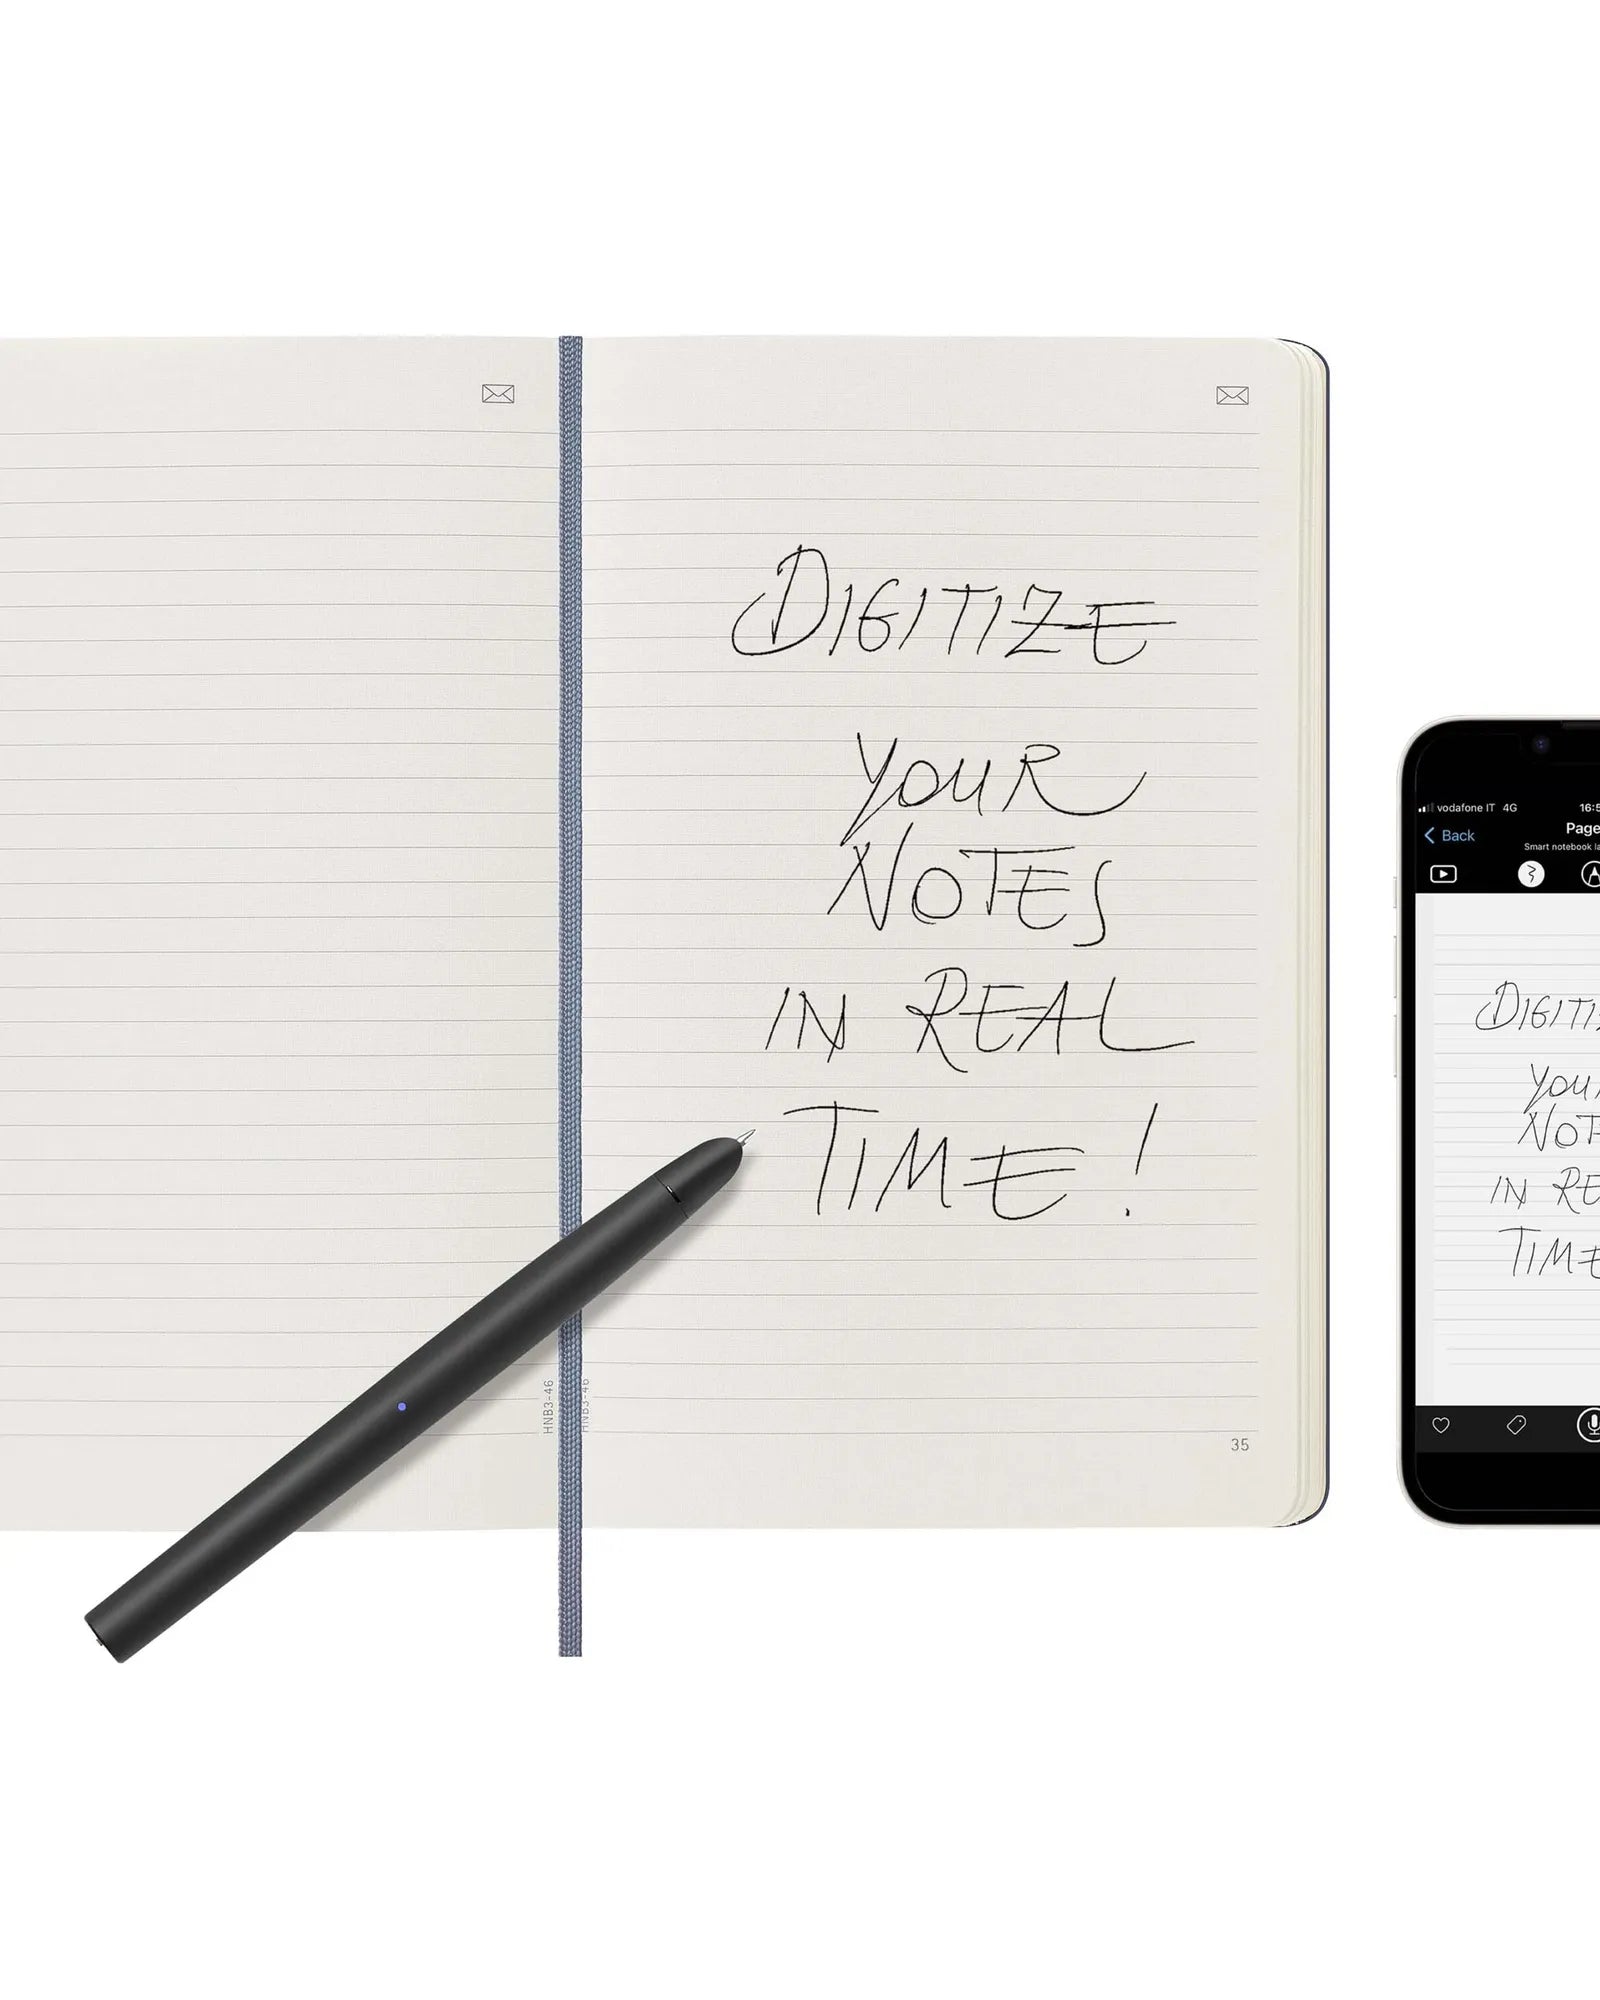 DIGITIZE
YOUR
NOTES
IN REAL
TIME!
HNB3-46
HNB3-46
35
vodafone IT 4G 16:5
Back
Page
Smart notebook la
DIGITI
YOU
NOT
IN RE
TIME